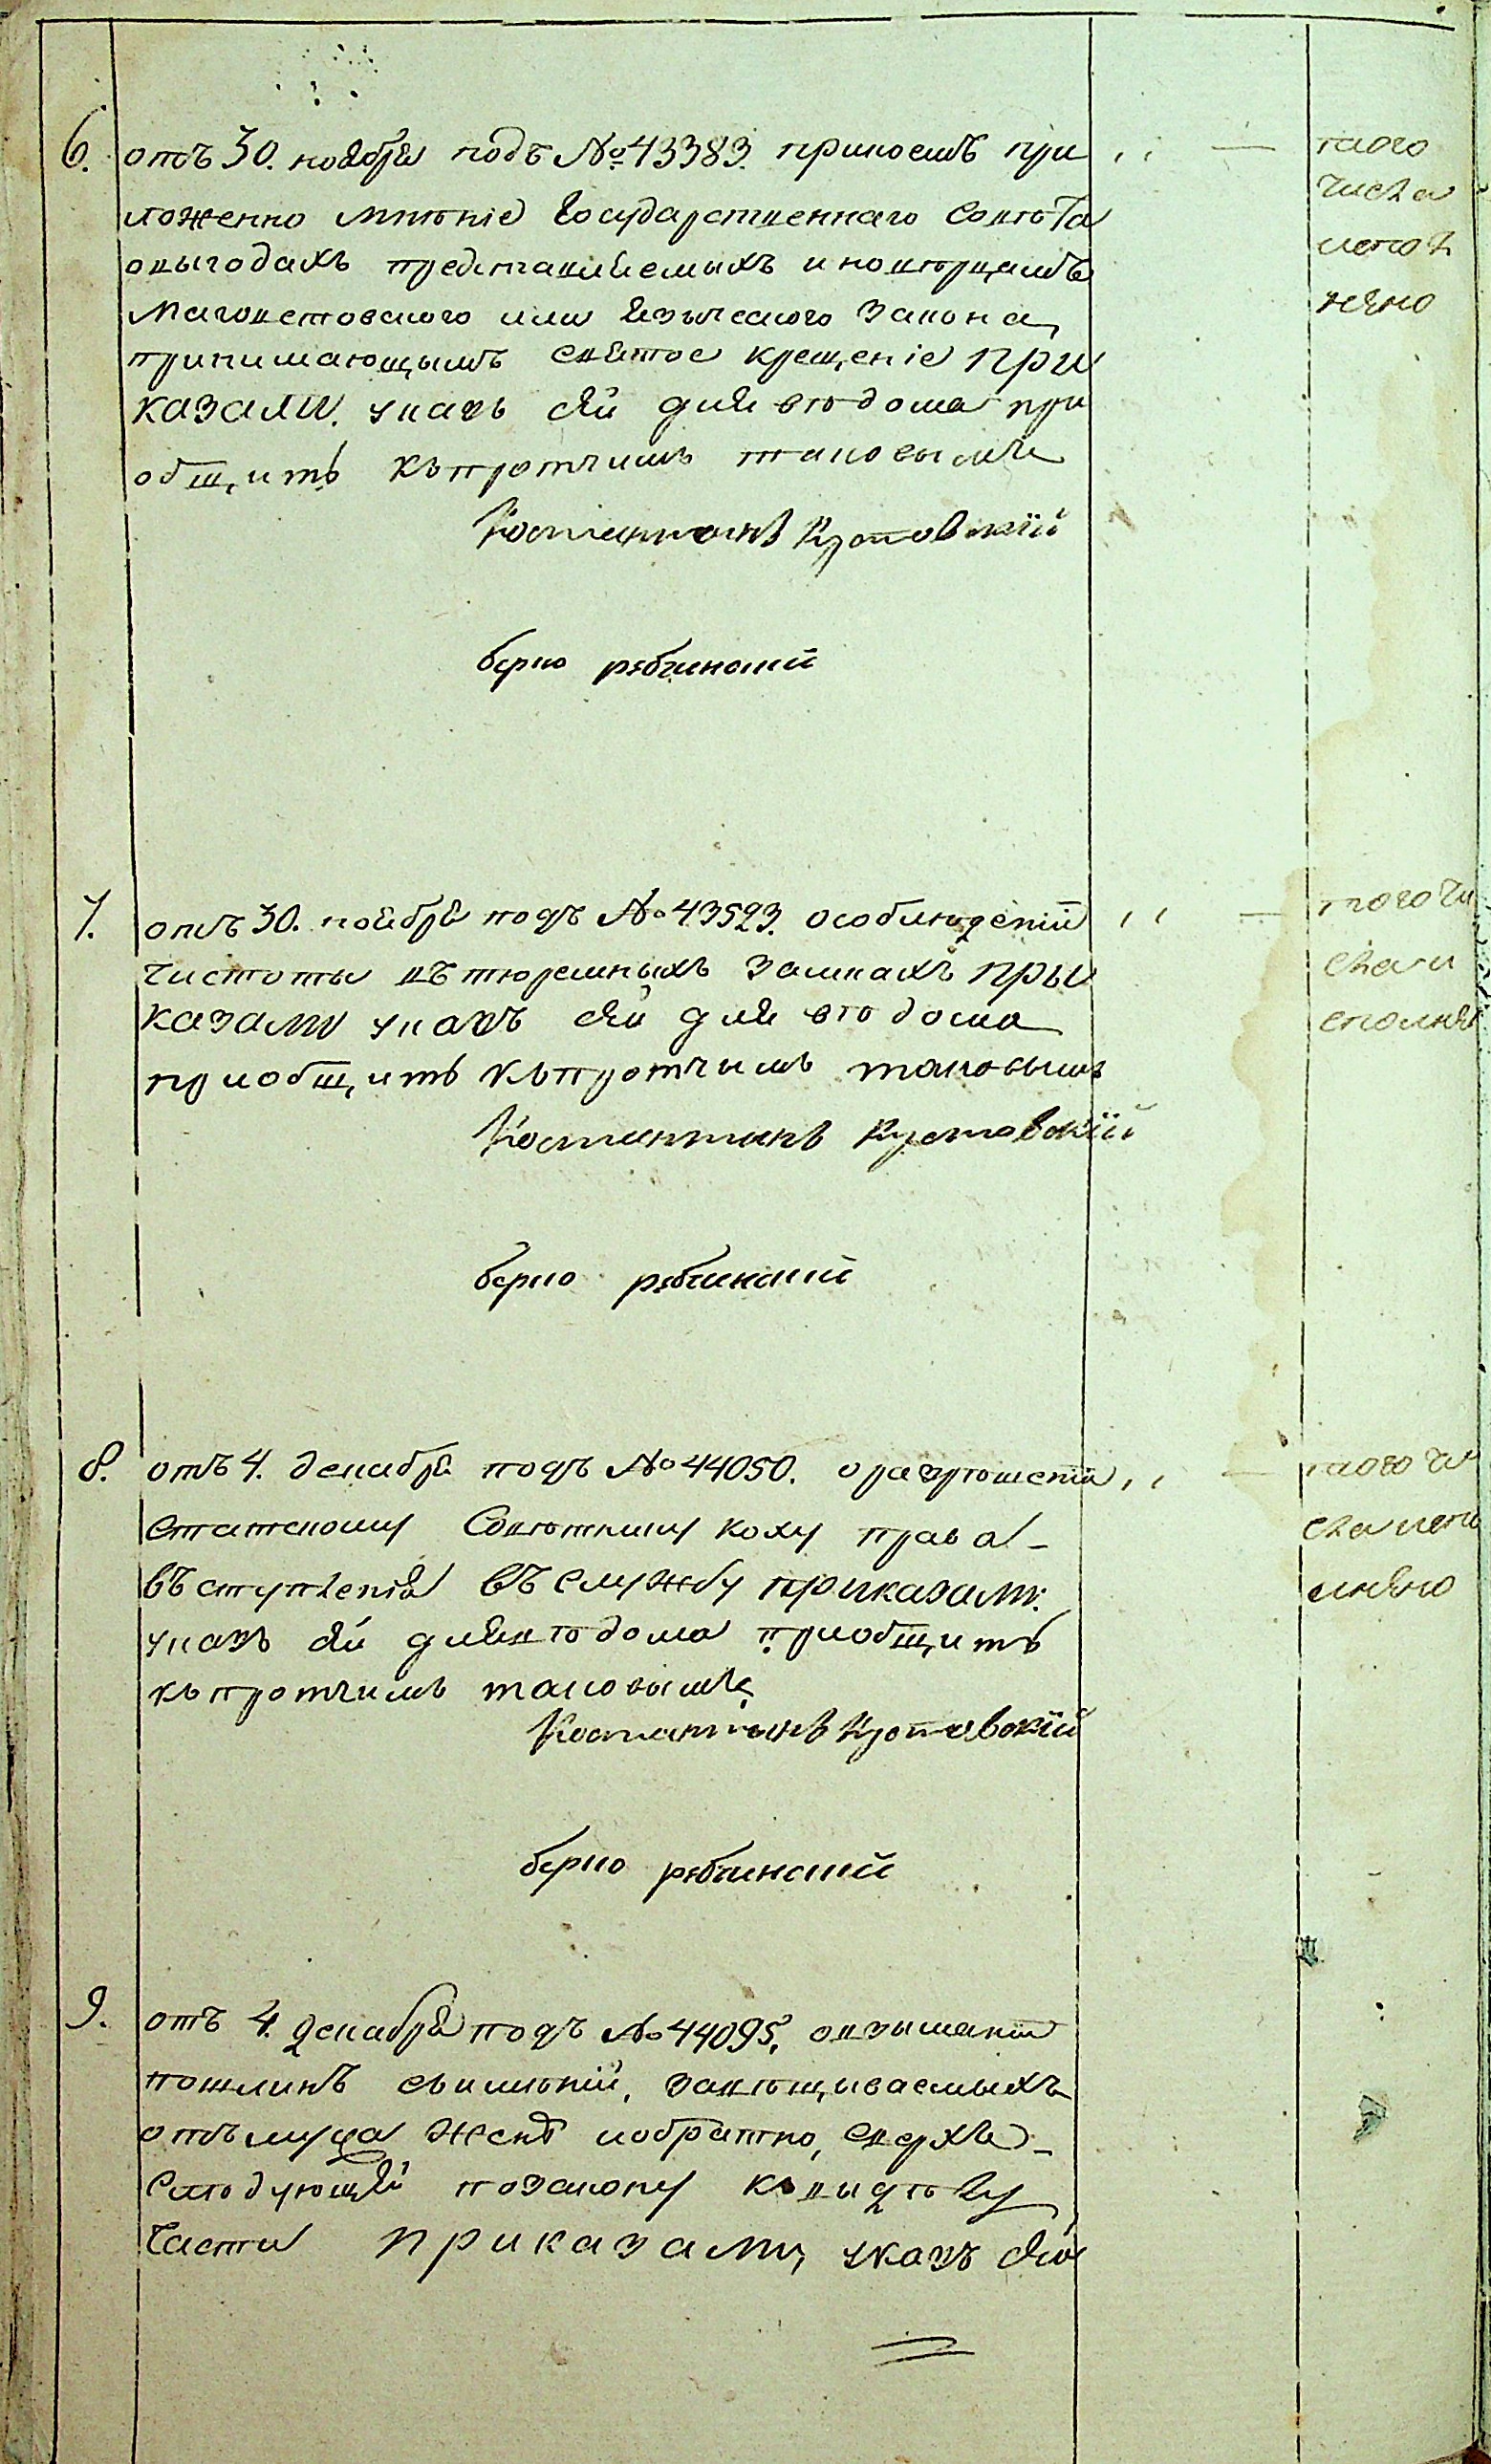 6. отъ 30. ноября подъ № 43383. приноемъ при
ложенно мнѣніе Государственнаго Совѣта
овыгодахъ представляемыхъ иновѣрцамъ
Магометовского или языческого Закона,
принимающымъ святое крещеніе при
казали. указъ сей для вѣдома при
общить къпротчимъ таковымъ
Костантинъ Кротовскій
верно рябчинский
того
числа
испол
нено
7. отъ 30. ноября подъ № 43523. особлюдении
чистоты въ тюремныхъ замкахъ при
казали указъ сей для вѣдома
приобщить къпротчимъ таковымъ
Костантинъ Кротовскій
верно рябчинский
того чи
сла и
сполне
8. отъ 4. декабря подъ № 44050. оразрѣшении
статскому Совѣтнику Коху права
въступленія въ службу приказали:
указъ сей для вѣдома приобщить
къ протчимъ таковымъ
Костантинъ Кротовскій
верно рябчинский
того чи
сла испо
лнено
9. отъ 4. декабря подъ № 44095. овзыманіи
пошлинъ съимѣній, завѣщываемыхъ
отъмужа женѣ иобратно, сверхъ
слѣдующей позакону къвыдѣлу
части приказали, указъ сей